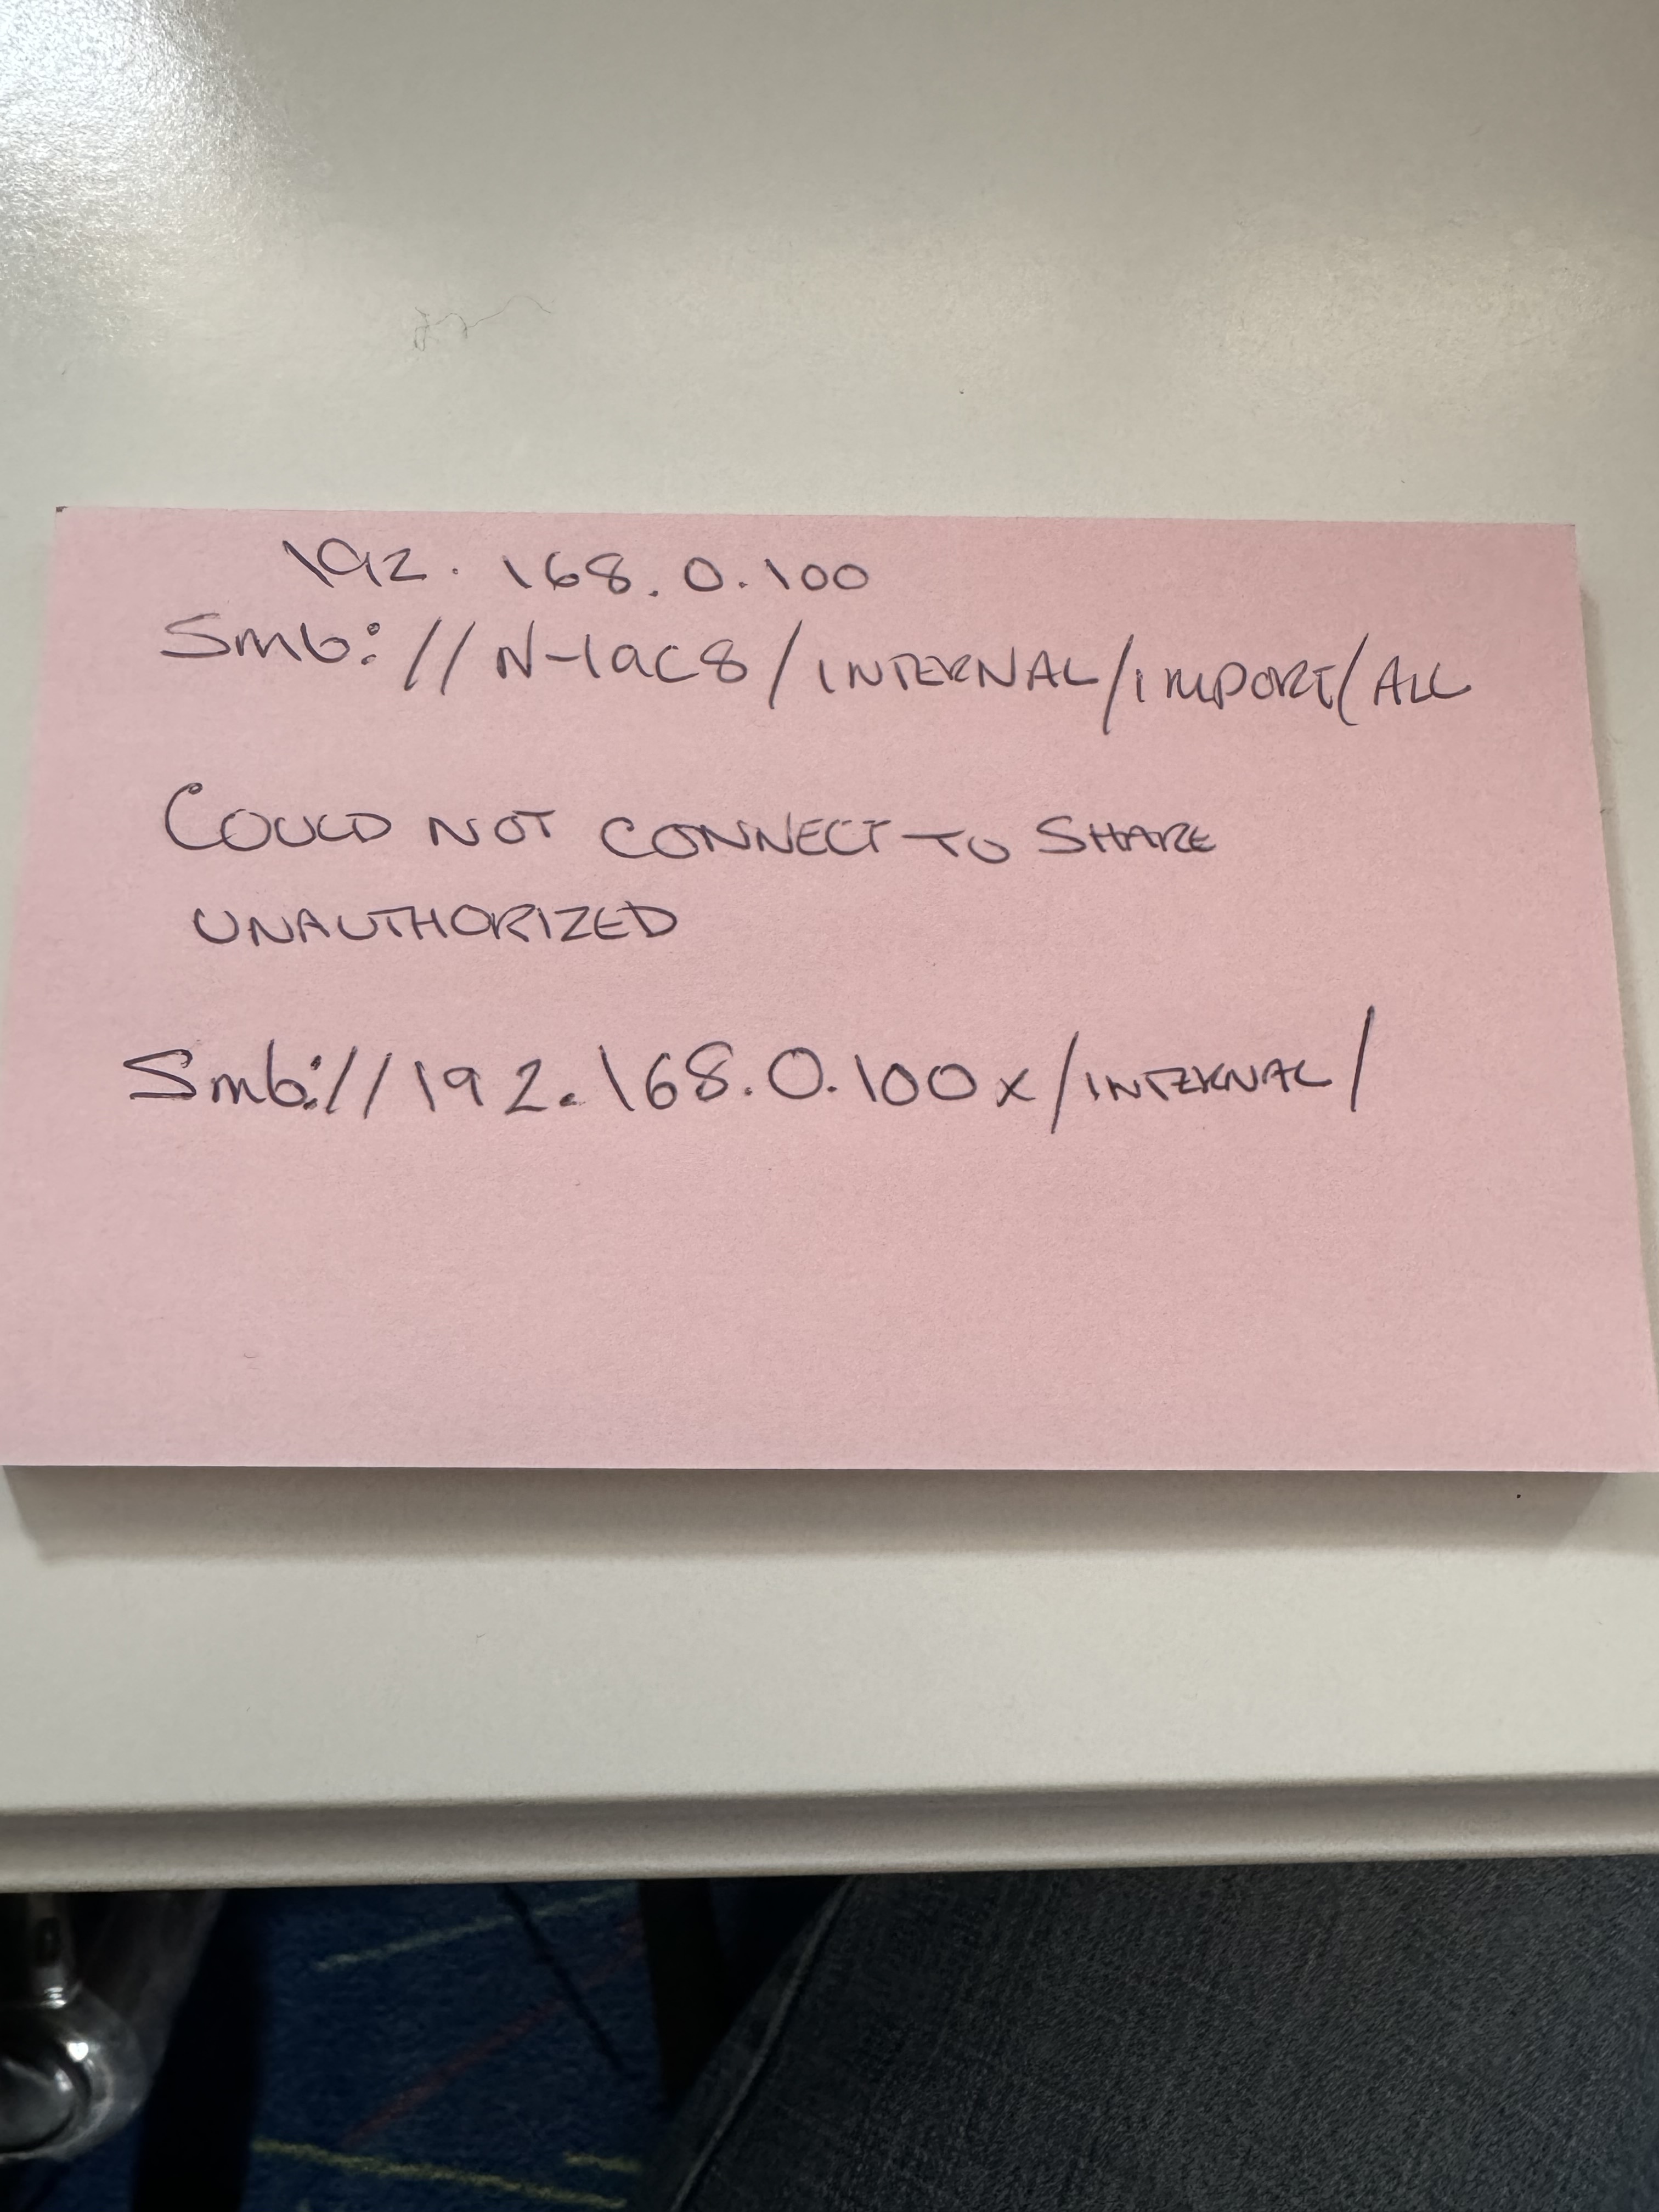 192.168.0.100
Smb://N-1ac8/INTERNAL/IMPORT/ALL
COULD NOT CONNECT TO SHARE
UNAUTHORIZED
Smb://192.168.0.100x/INTERNAL/